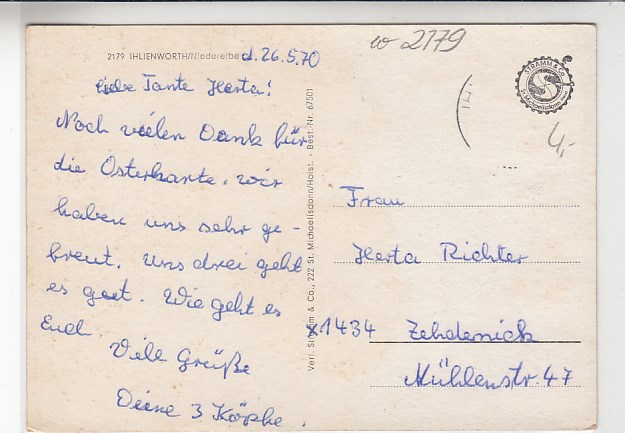 2179 IHLIENWORTH/Niederelbe
d. 26.5.70
Liebe Tante Herta!
Noch vielen Dank für
die Osterkarte. Wir
haben uns sehr ge-
freut. Uns drei geht
es gut. Wie geht es
Euch
Viele Grüße
Deine 3 Köpke.
Verl. Stramm & Co., 222 St. Michaelisdonn/Holst. - Best.-Nr. 67501
w 2179
STRAMM & Co
St. Michaelisdonn
4,-
Frau
Herta Richter
x1434 Zehdenick
Mühlenstr. 47